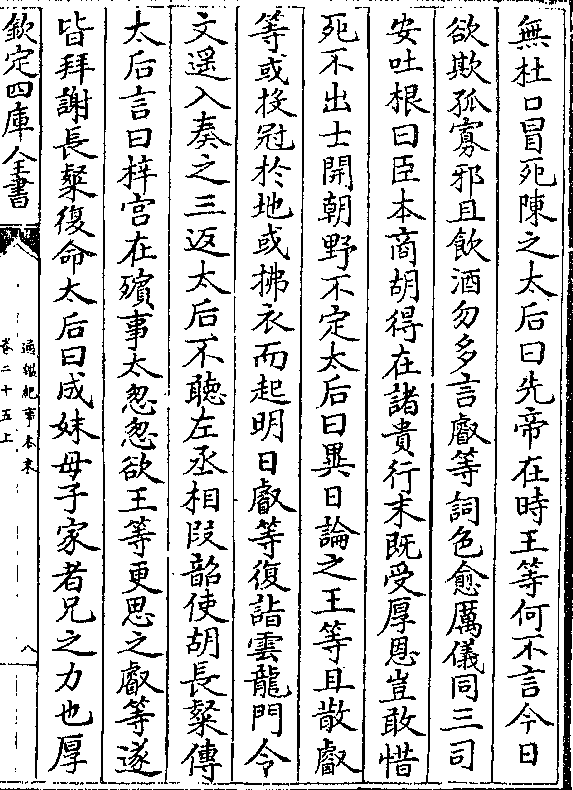 無杜口冒死陳之太后曰先帝在時王等何不言今日
欲欺孤寡邪且飲酒勿多言叡等詞色愈厲儀同三司
安吐根曰臣本商胡得在諸貴行末既受厚恩豈敢惜
死不出士開朝野不定太后曰異日論之王等且散叡
等或投冠於地或拂衣而起明日叡等復詣雲龍門令
文遥入奏之三返太后不聽左丞相段韶使胡長粲傳
太后言曰梓宫在殯事太忽忽欲王等更思之叡等遂
皆拜謝長粲復命太后曰成妹母子家者兄之力也厚
欽定四庫全書
通鑑紀事本末
卷二十五上
八